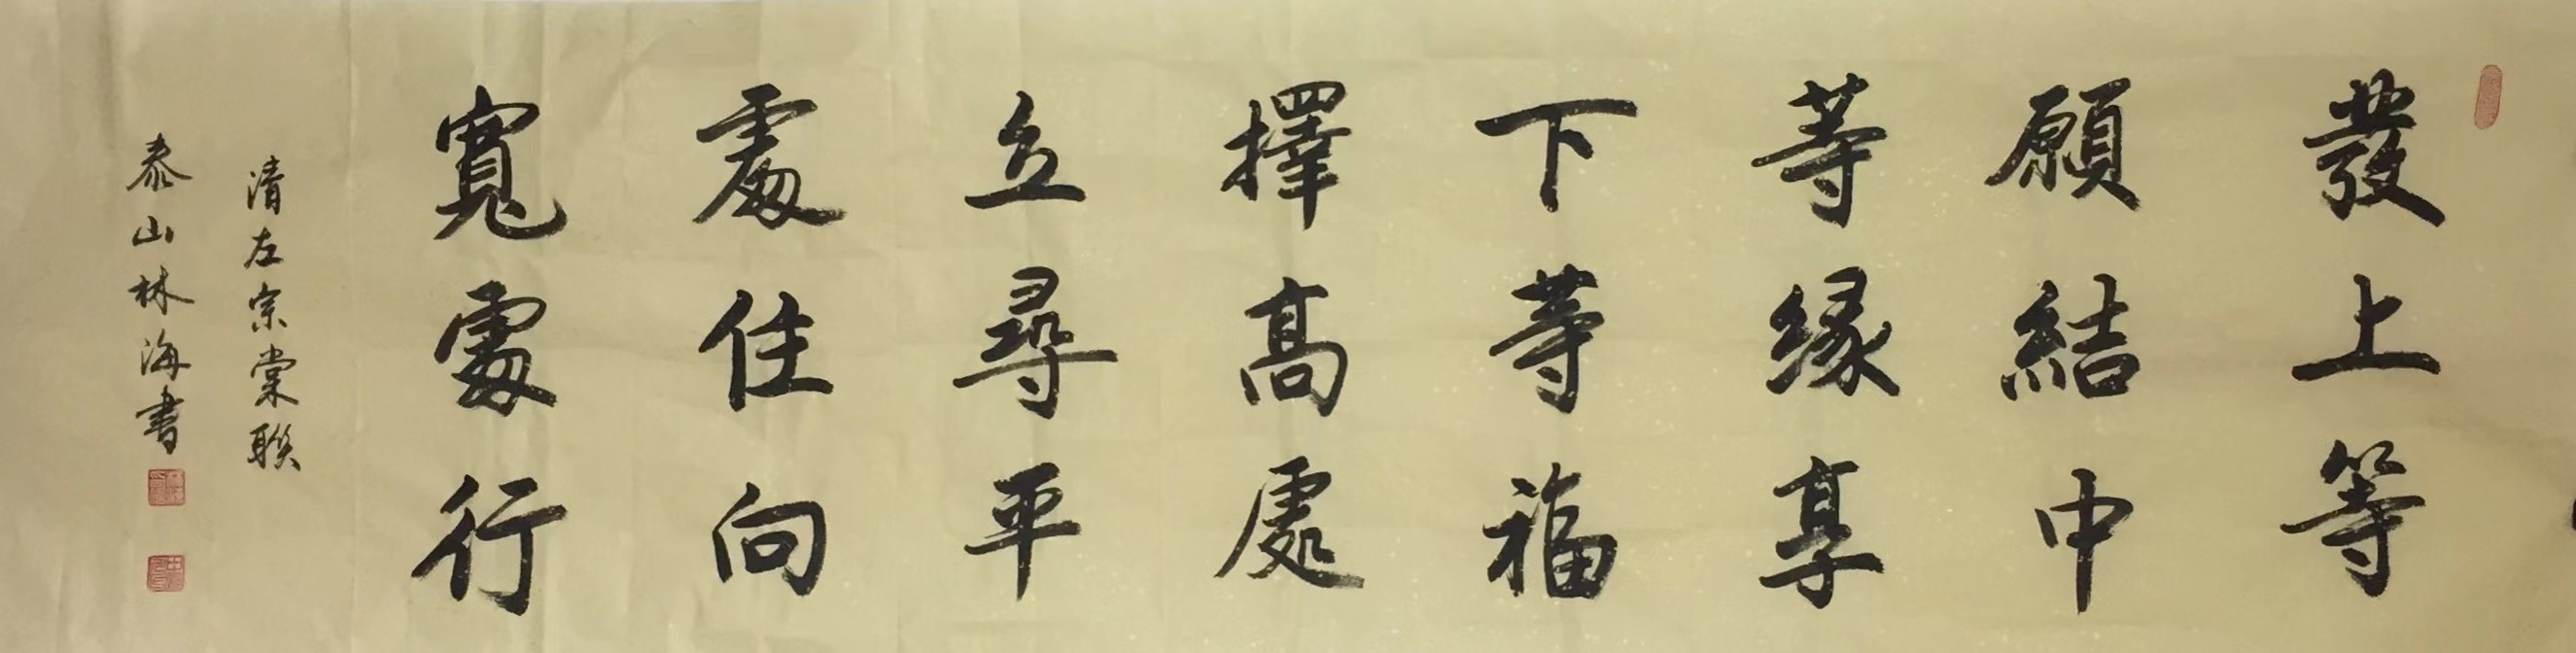 發上等
願結中
等緣享
下等福
擇高處
立尋平
處住向
寬處行
清左宗棠聯
泰山林海書